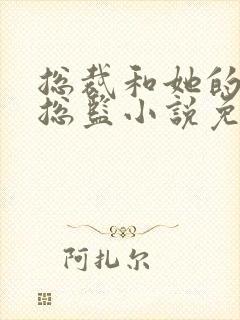 总裁和她的
总监小说免
阿扎尔